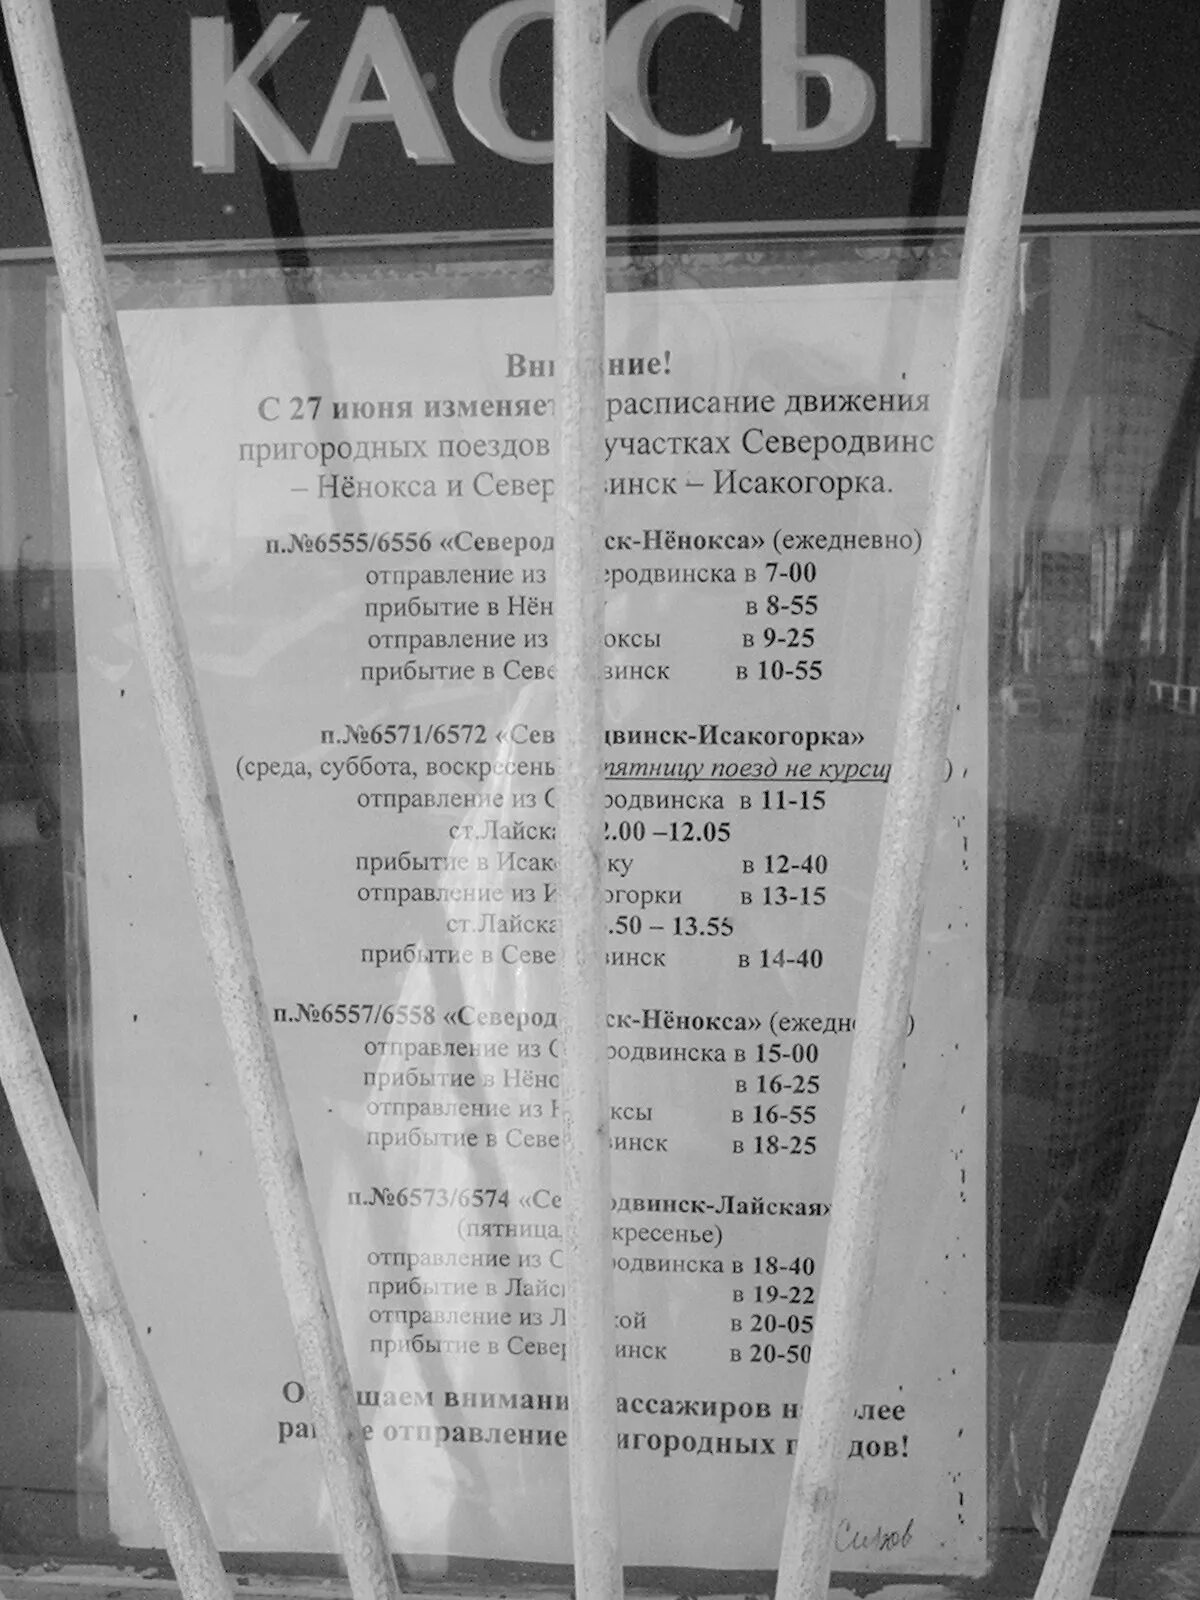 КАССЫ
Внимание!
С 27 июня изменяется расписание движения
пригородных поездов на участках Северодвинс
– Нёнокса и Северодвинск – Исакогорка.
п.№6555/6556 «Северодвинск-Нёнокса» (ежедневно)
отправление из Северодвинска в 7-00
прибытие в Нёноксу в 8-55
отправление из Нёноксы в 9-25
прибытие в Северодвинск в 10-55
п.№6571/6572 «Северодвинск-Исакогорка»
(среда, суббота, воскресенье, пятницу поезд не курсирует)
отправление из Северодвинска в 11-15
ст.Лайская 12.00 –12.05
прибытие в Исакогорку в 12-40
отправление из Исакогорки в 13-15
ст.Лайская 13.50 – 13.55
прибытие в Северодвинск в 14-40
п.№6557/6558 «Северодвинск-Нёнокса» (ежедневно)
отправление из Северодвинска в 15-00
прибытие в Нёноксу в 16-25
отправление из Нёноксы в 16-55
прибытие в Северодвинск в 18-25
п.№6573/6574 «Северодвинск-Лайская»
(пятница, воскресенье)
отправление из Северодвинска в 18-40
прибытие в Лайскую в 19-22
отправление из Лайской в 20-05
прибытие в Северодвинск в 20-50
Обращаем внимание пассажиров на более
раннее отправление пригородных поездов!